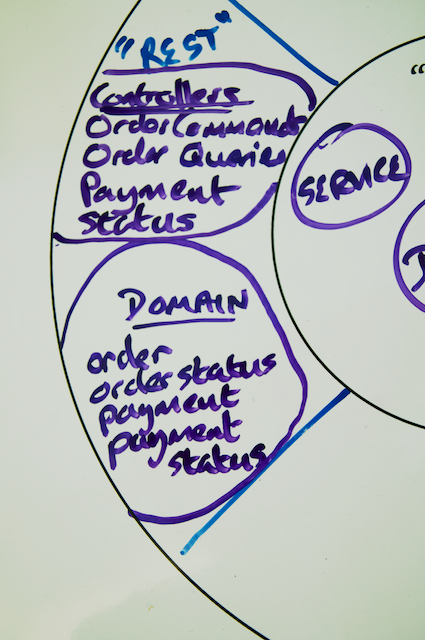 "REST"
Controllers
Order Commands
Order Queries
Payment
status
SERVICE
DOMAIN
order
order status
payment
payment
status